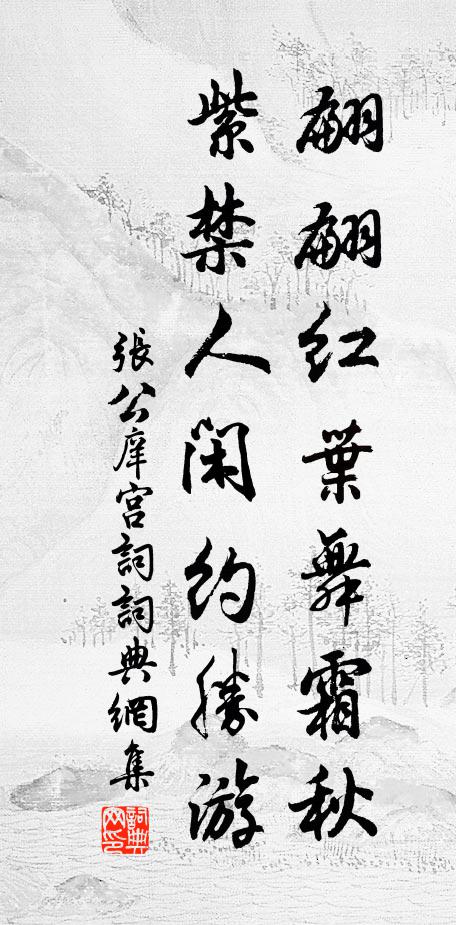 翩翩红葉舞霜秋
紫禁人闲約勝游
張公庠宫詞詞典網集
詞典网印